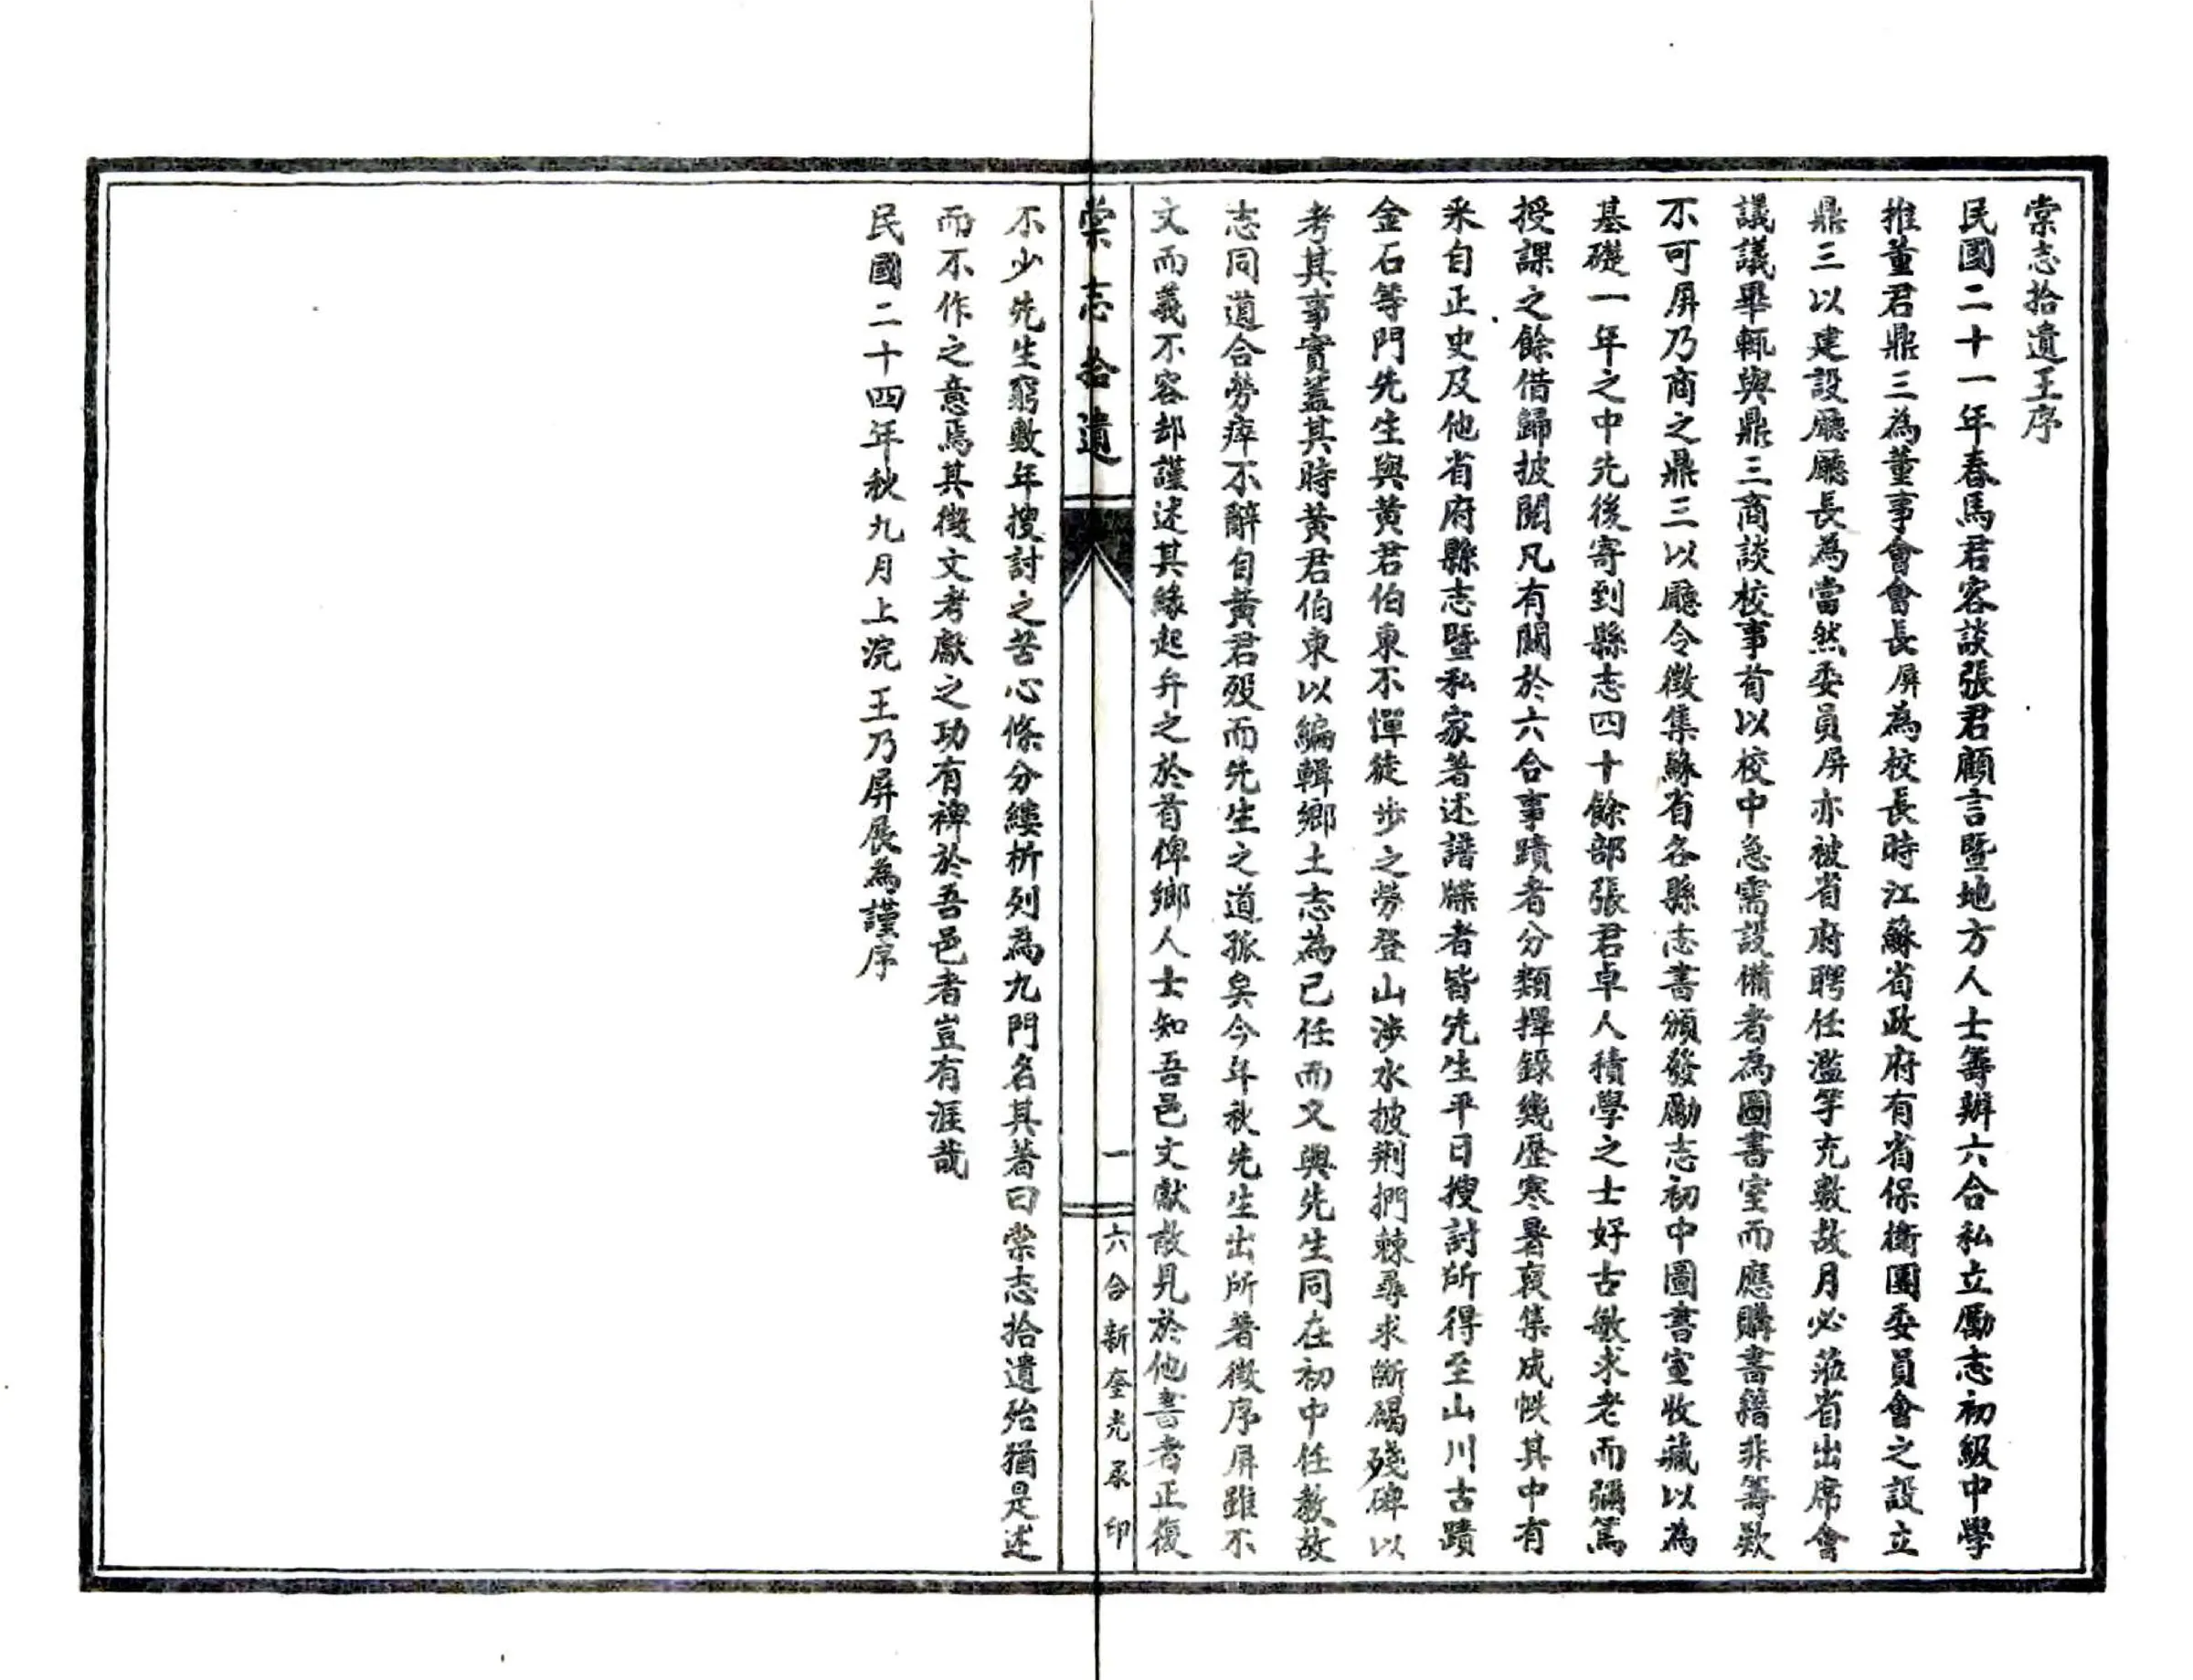 棠志拾遺王序
民國二十一年春馬君客談張君顧言暨地方人士籌辦六合私立勵志初級中學
推董君鼎三為董事會會長屏為校長時江蘇省政府有省保衛團委員會之設立
鼎三以建設廳廳長為當然委員屏亦被省府聘任濫竽充數故月必蒞省出席會
議議畢輒與鼎三商談校事首以校中急需設備者為圖書室而應購書籍非籌欵
不可屏乃商之鼎三以廳令徵集蘇省各縣志書頒發勵志初中圖書室收藏以為
基礎一年之中先後寄到縣志四十餘部張君卓人積學之士好古敏求老而彌篤
授課之餘借歸披閱凡有關於六合事蹟者分類擇錄幾歷寒暑裒集成帙其中有
采自正史及他省府縣志暨私家著述譜牒者皆先生平日搜討所得至山川古蹟
金石等門先生與黃君伯東不憚徒步之勞登山涉水披荆捫棘尋求斷碣殘碑以
考其事實蓋其時黃君伯東以編輯鄉土志為己任而又與先生同在初中任教故
志同道合勞瘁不辭自黃君歿而先生之道孤矣今年秋先生出所著徵序屏雖不
文而義不容却謹述其緣起弁之於首俾鄉人士知吾邑文獻散見於他書者正復
棠志拾遺
一
六合新奎光承印
不少先生窮數年搜討之苦心條分縷析列為九門名其著曰棠志拾遺殆猶是述
而不作之意焉其徵文考獻之功有裨於吾邑者豈有涯哉
民國二十四年秋九月上浣王乃屏展為謹序